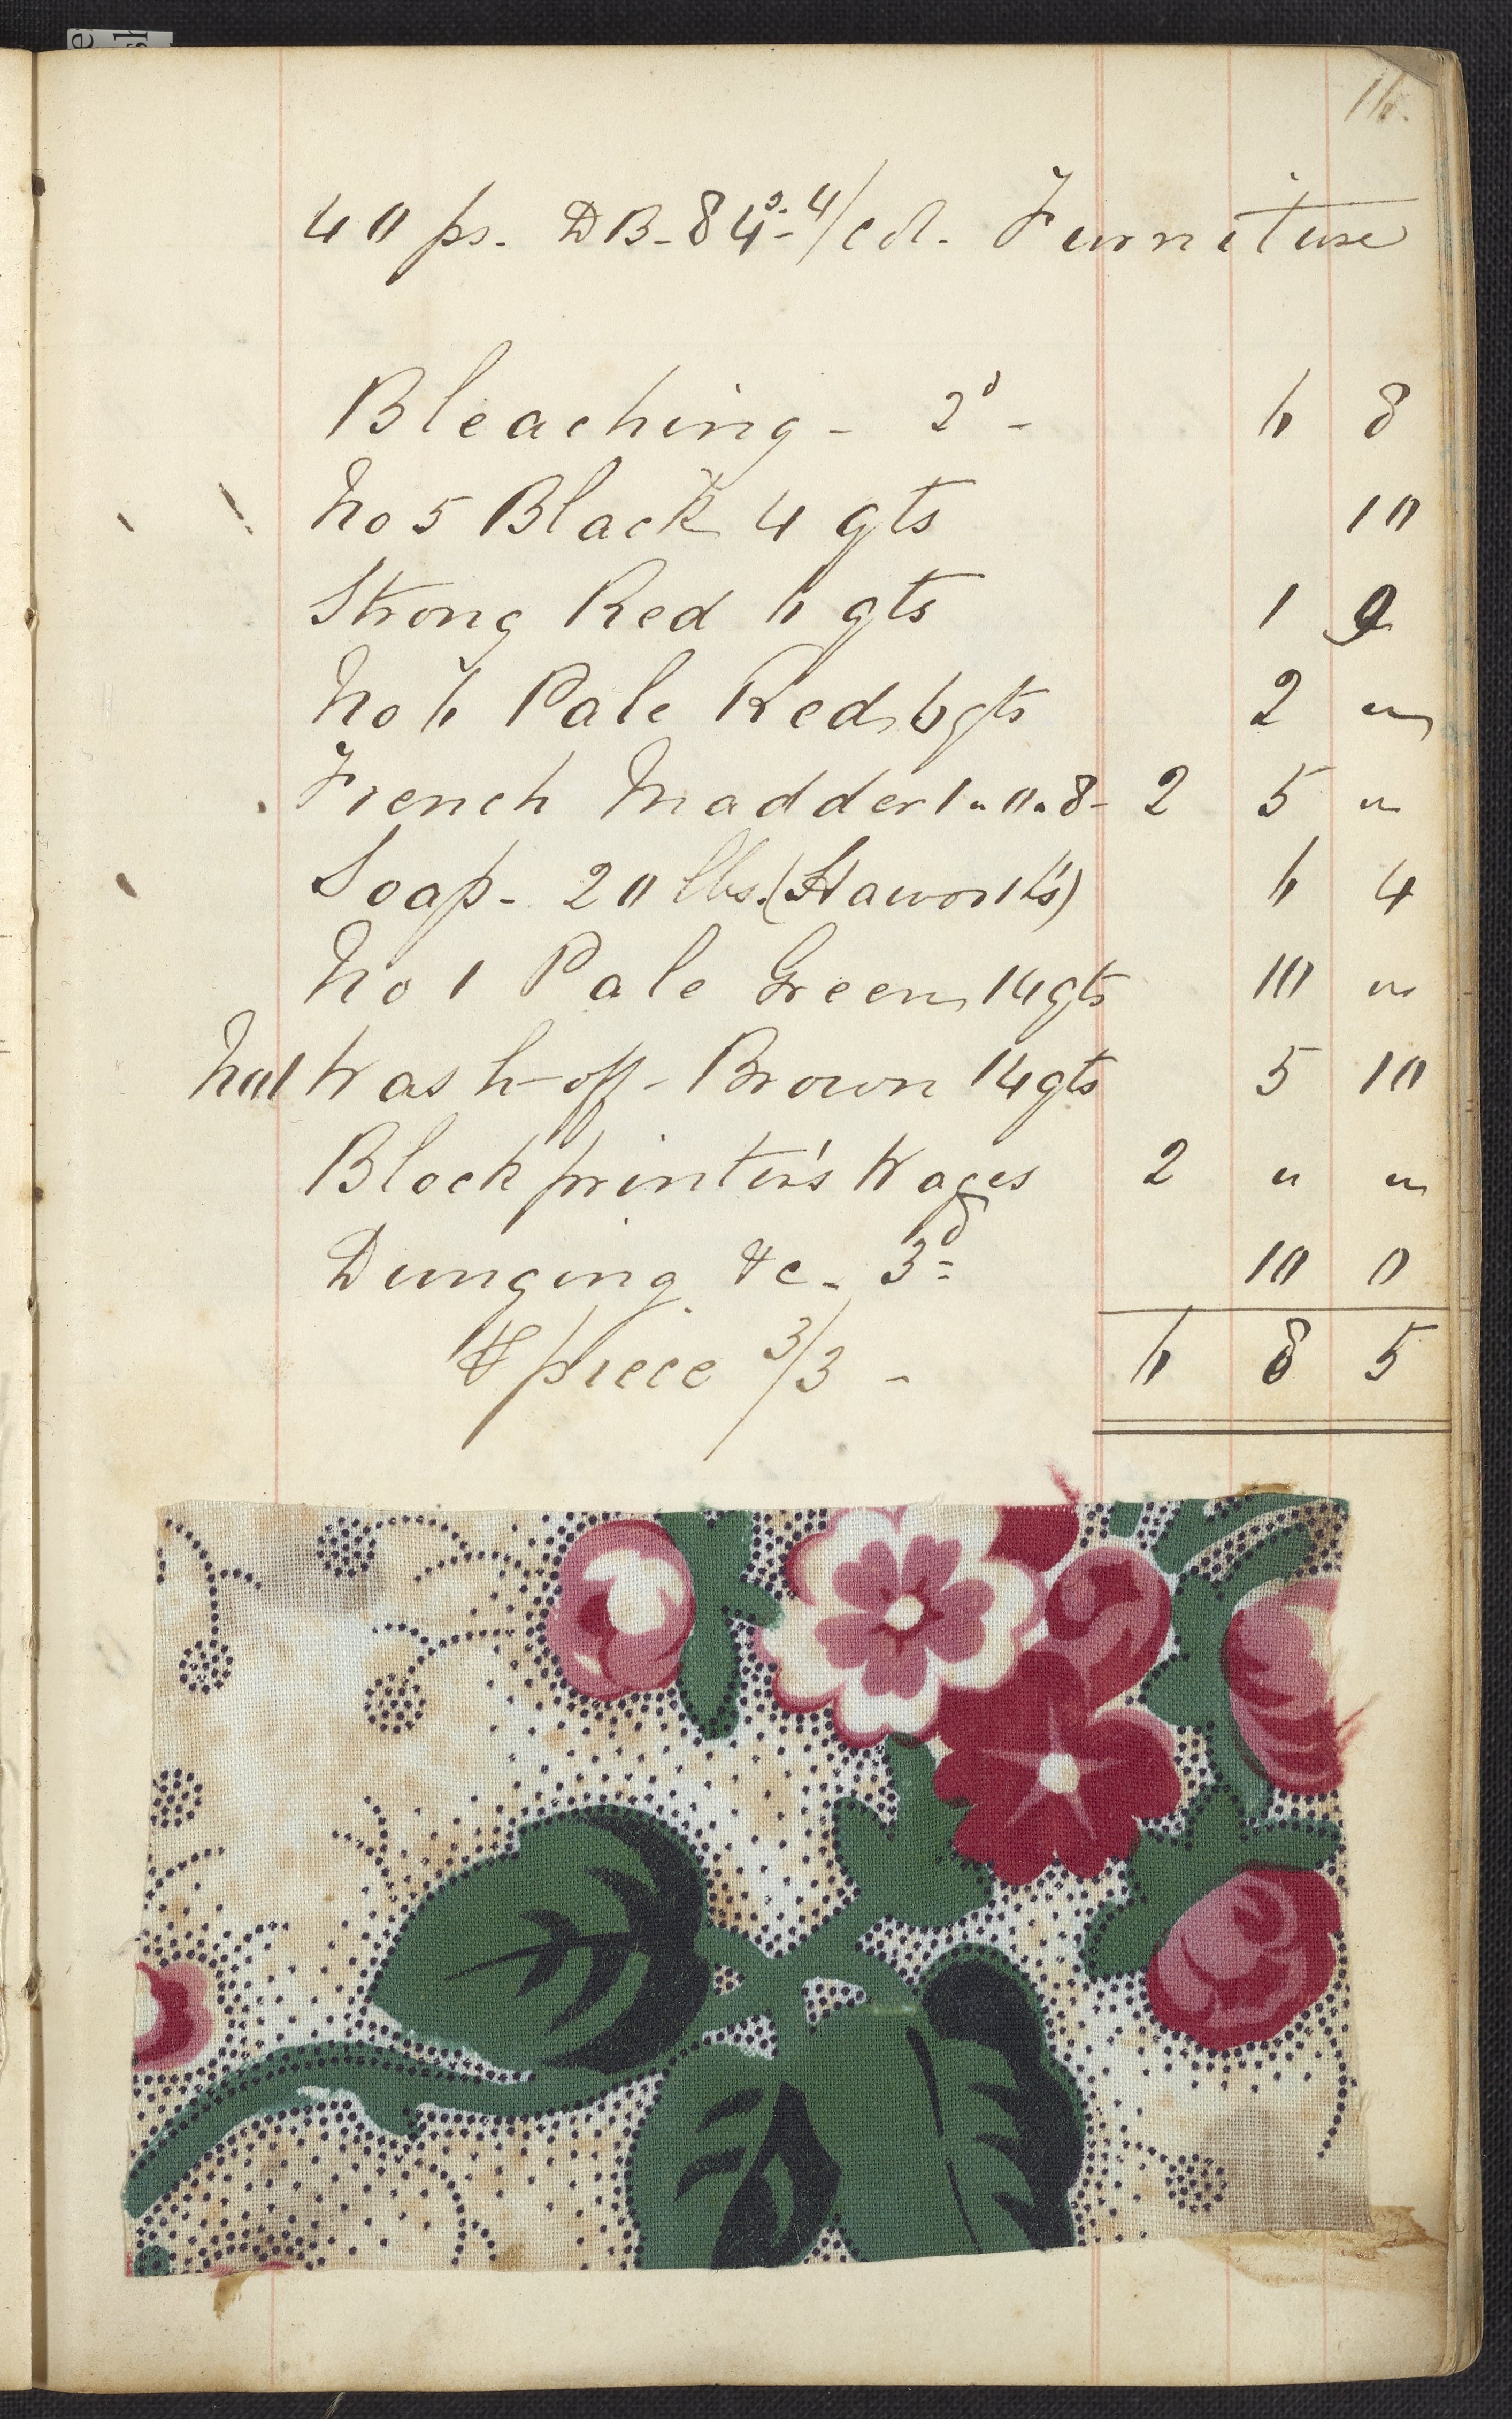 16.
40 ps. DB-84s- 4/col. Furniture
Bleaching - 2d - 6 8
No 5 Black 4 qts 10
Strong Red 6 qts 1 9
No 6 Pale Red 6 qts 2 "
French Madder 1 " 0 " 8 - 2 5 "
Soap - 20 lbs. (Haworth's) 6 4
No 1 Pale Green 14 qts 10 "
No 1 Wash-off - Brown 14 qts 5 10
Block printer's Wages 2 " "
Dunging &c - 3d = 10 0
⅌ piece 3/3 - 6 8 5